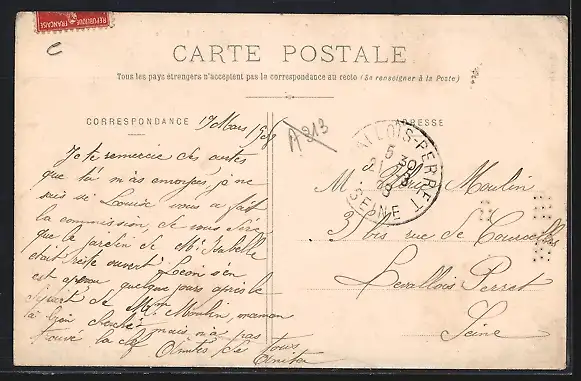 REPUBLIQUE FRANÇAISE
CARTE POSTALE
Tous les pays étrangers n'acceptent pas la correspondance au recto (Se renseigner à la Poste)
CORRESPONDANCE
17 Mars 1908
Je te remercie des cartes
que tu m'as envoyées, je ne
sais si Louise vous a fait
la commission, de vous dire
que le jardin de Mme Isabelle
était resté ouvert? Léon s'en
est aperçu quelque jours après le
départ de Mme Moulin, maman
l'a bien cherché mais n'a pas
trouvé la clef Amitiés de tous
A 213
ADRESSE
LEVALLOIS-PERRET
SEINE
Moulin
35 bis rue de Courcelles
Levallois Perret
Seine